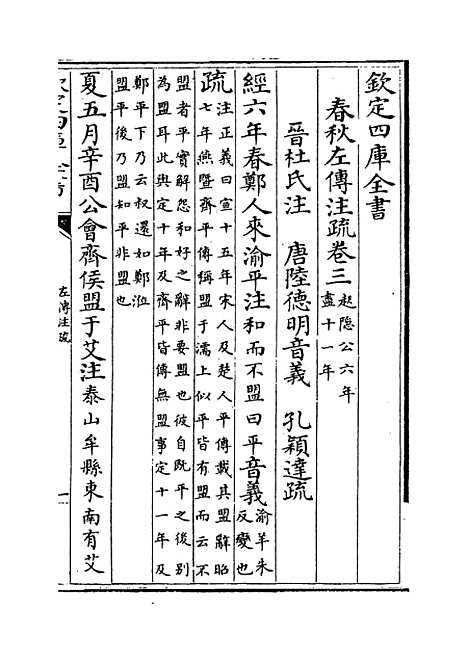 欽定四庫全書
春秋左傳注疏卷三起隱公六年
盡十一年
晉杜氏注 唐陸德明音義 孔穎達疏
經六年春鄭人來渝平注和而不盟曰平音義渝羊朱
反變也
疏注正義曰宣十五年宋人及楚人平傳載其盟辭昭
七年燕暨齊平傳稱盟于濡上似平皆有盟而云不
盟者平實解怨和好之辭非要盟也彼自既平之後別
為盟耳此與定十年及齊平皆傳無盟事定十一年及
鄭平下乃云叔還如鄭涖
盟平後乃盟知平非盟也
夏五月辛酉公會齊侯盟于艾注泰山牟縣東南有艾
左傳注疏
一